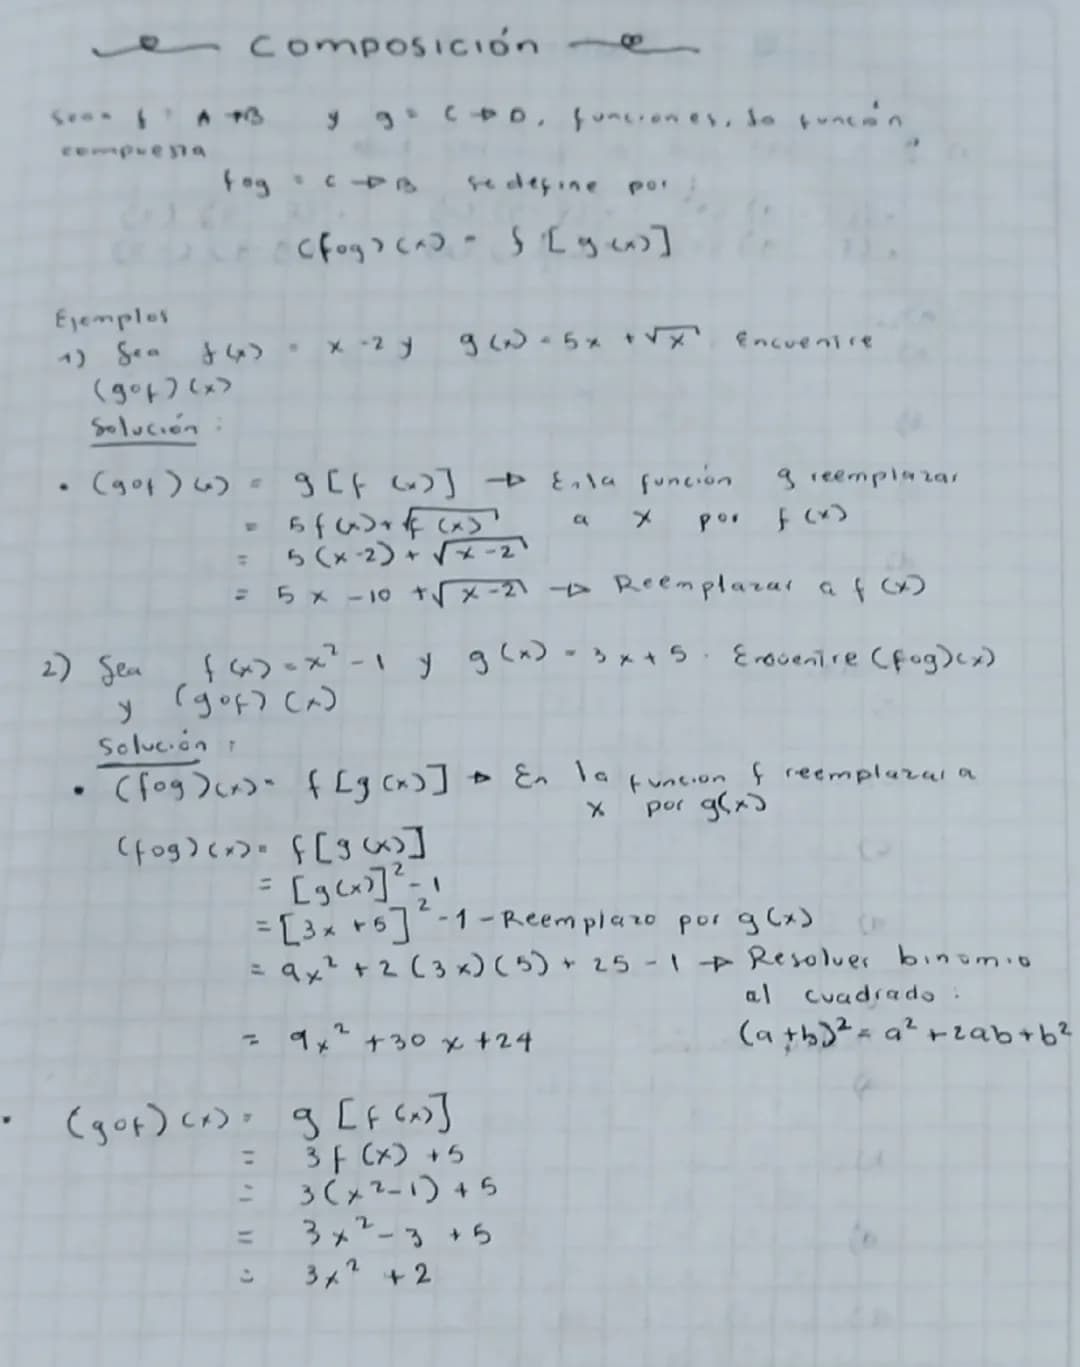 Composición
Sean f : A → B y g = C → D, funciones, la función
compuesta
fog = C → B se define por:
(fog)(x) = f [g(x)]
Ejemplos
1) Sea f(x) = x - 2 y g(x) = 5x + √x. Encuentre
(gof)(x)
Solución:
• (gof)(x) = g[f(x)] → En la función g reemplazar
= 5f(x) + √f(x) a x por f(x)
= 5(x-2) + √x-2
= 5x - 10 + √x-2 → Reemplazar a f(x)
2) Sea f(x) = x² - 1 y g(x) = 3x + 5. Encuentre (fog)(x)
y (gof)(x)
Solución:
• (fog)(x) = f[g(x)] → En la funcion f reemplazar a
x por g(x)
(fog)(x) = f[g(x)]
= [g(x)]² - 1
= [3x + 5]² - 1 - Reemplazo por g(x)
= 9x² + 2(3x)(5) + 25 - 1 → Resolver binomio
al cuadrado:
= 9x² + 30x + 24 (a+b)² = a² + 2ab + b²
• (gof)(x) = g[f(x)]
= 3f(x) + 5
= 3(x²-1) + 5
= 3x² - 3 + 5
= 3x² + 2